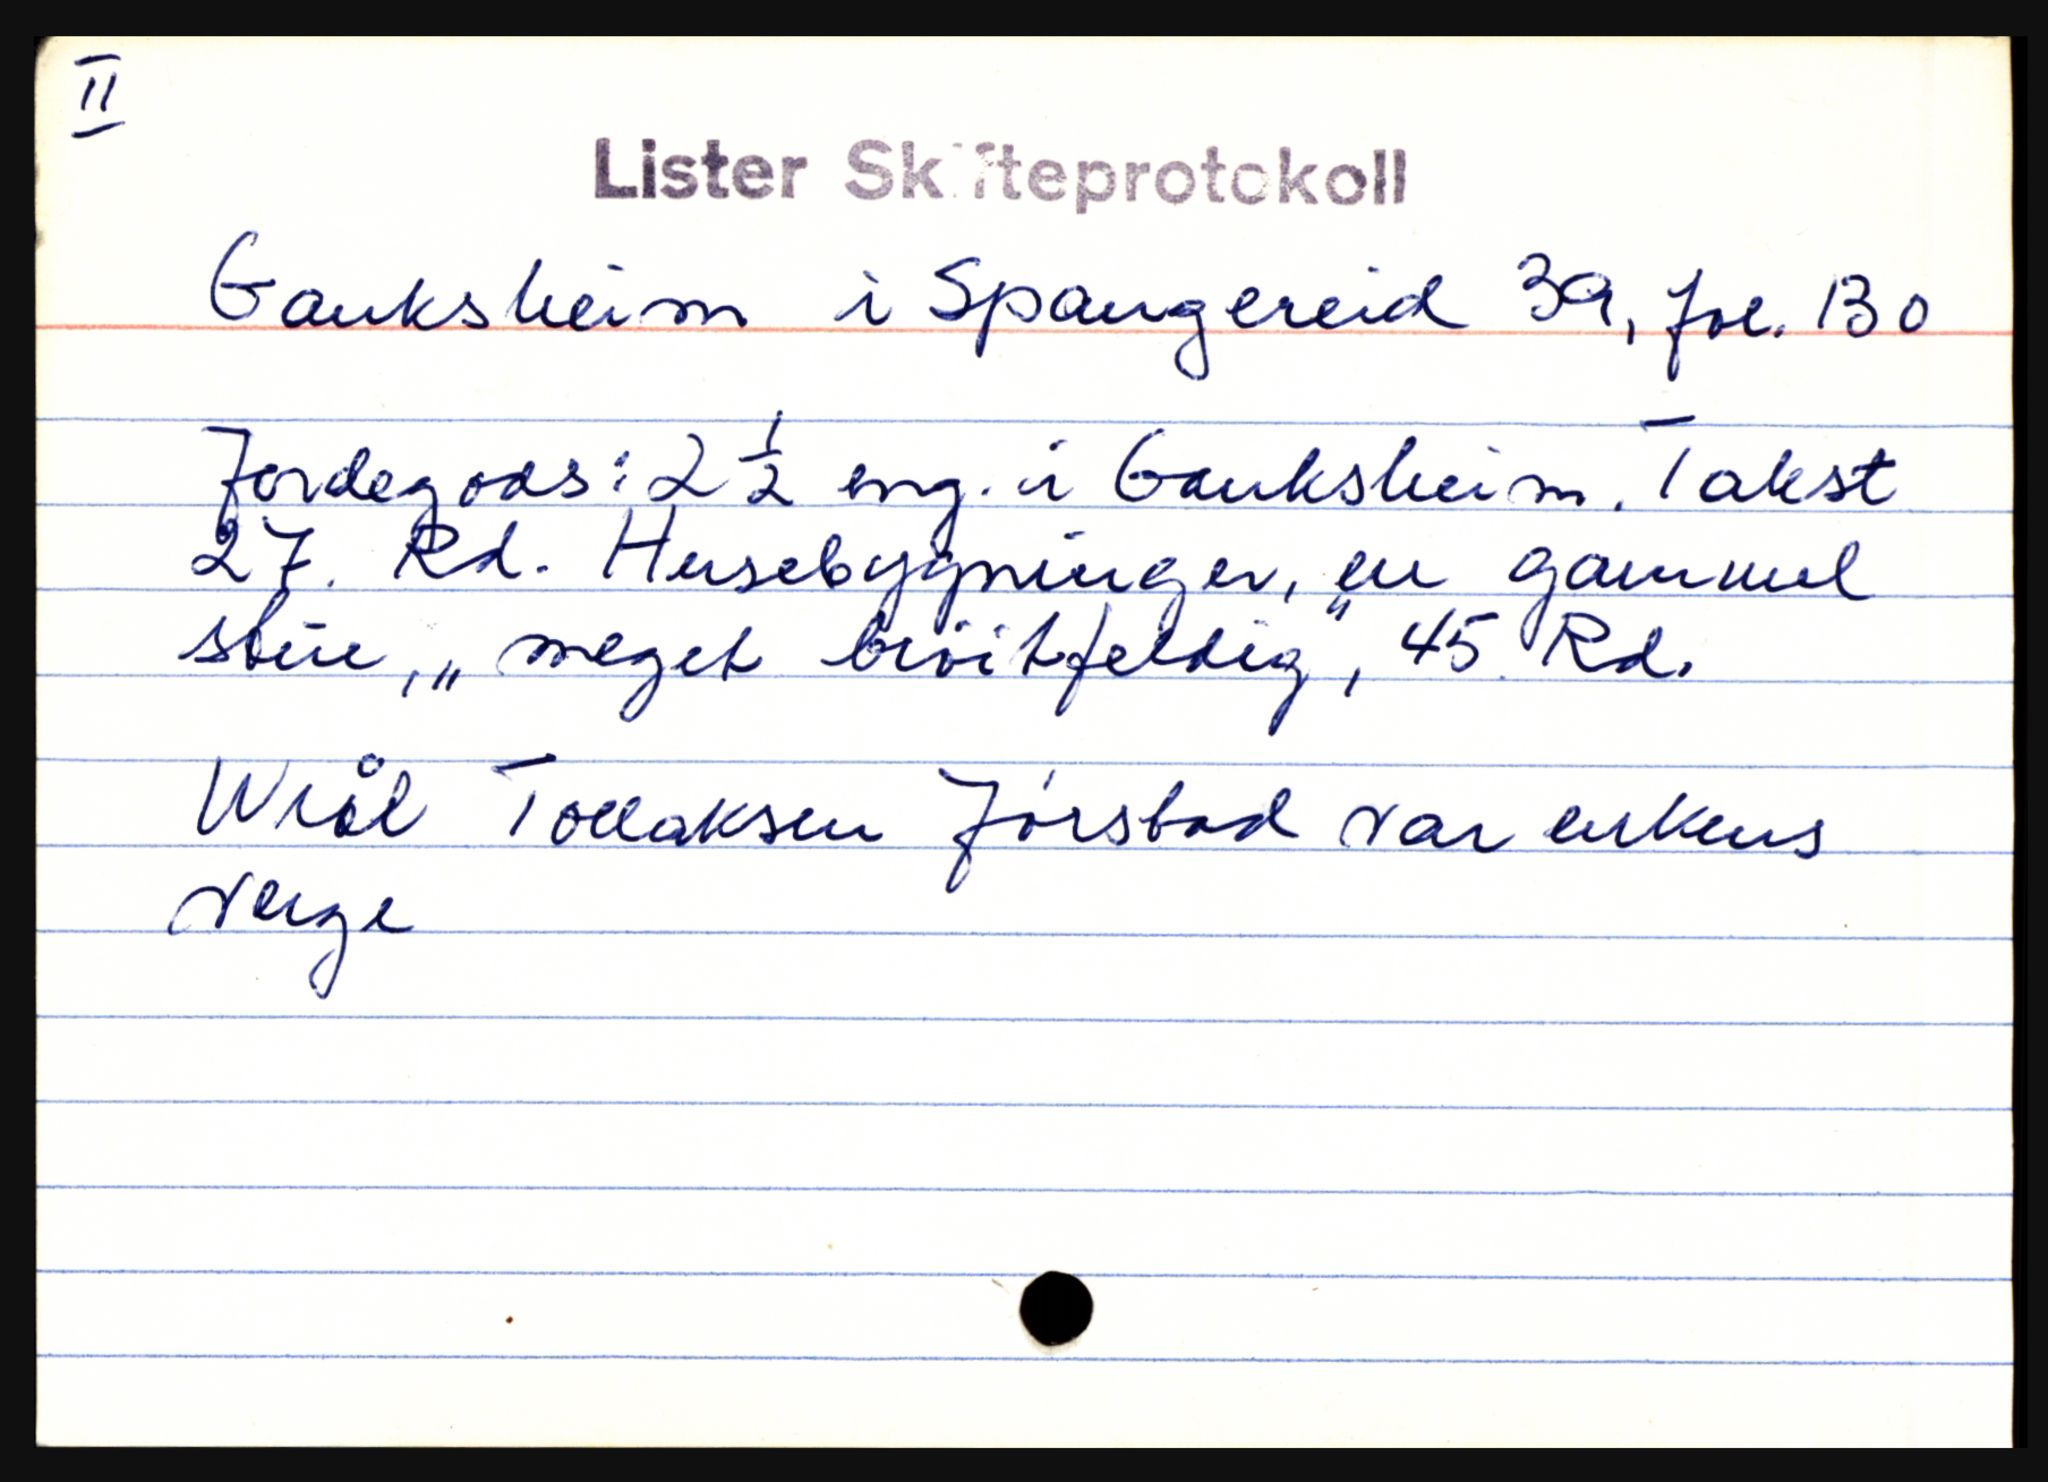 II
Lister Skifteprotokoll
Gauksheim i Spangereid 39, fol. 130
Jordegods: 2 1/2 eng. i Gauksheim. Takst
27. Rd. Husebygninger, en gammel
stue, „meget bröitfeldig", 45 Rd.
Wriål Tollaksen Jórsbad var enkens
verge